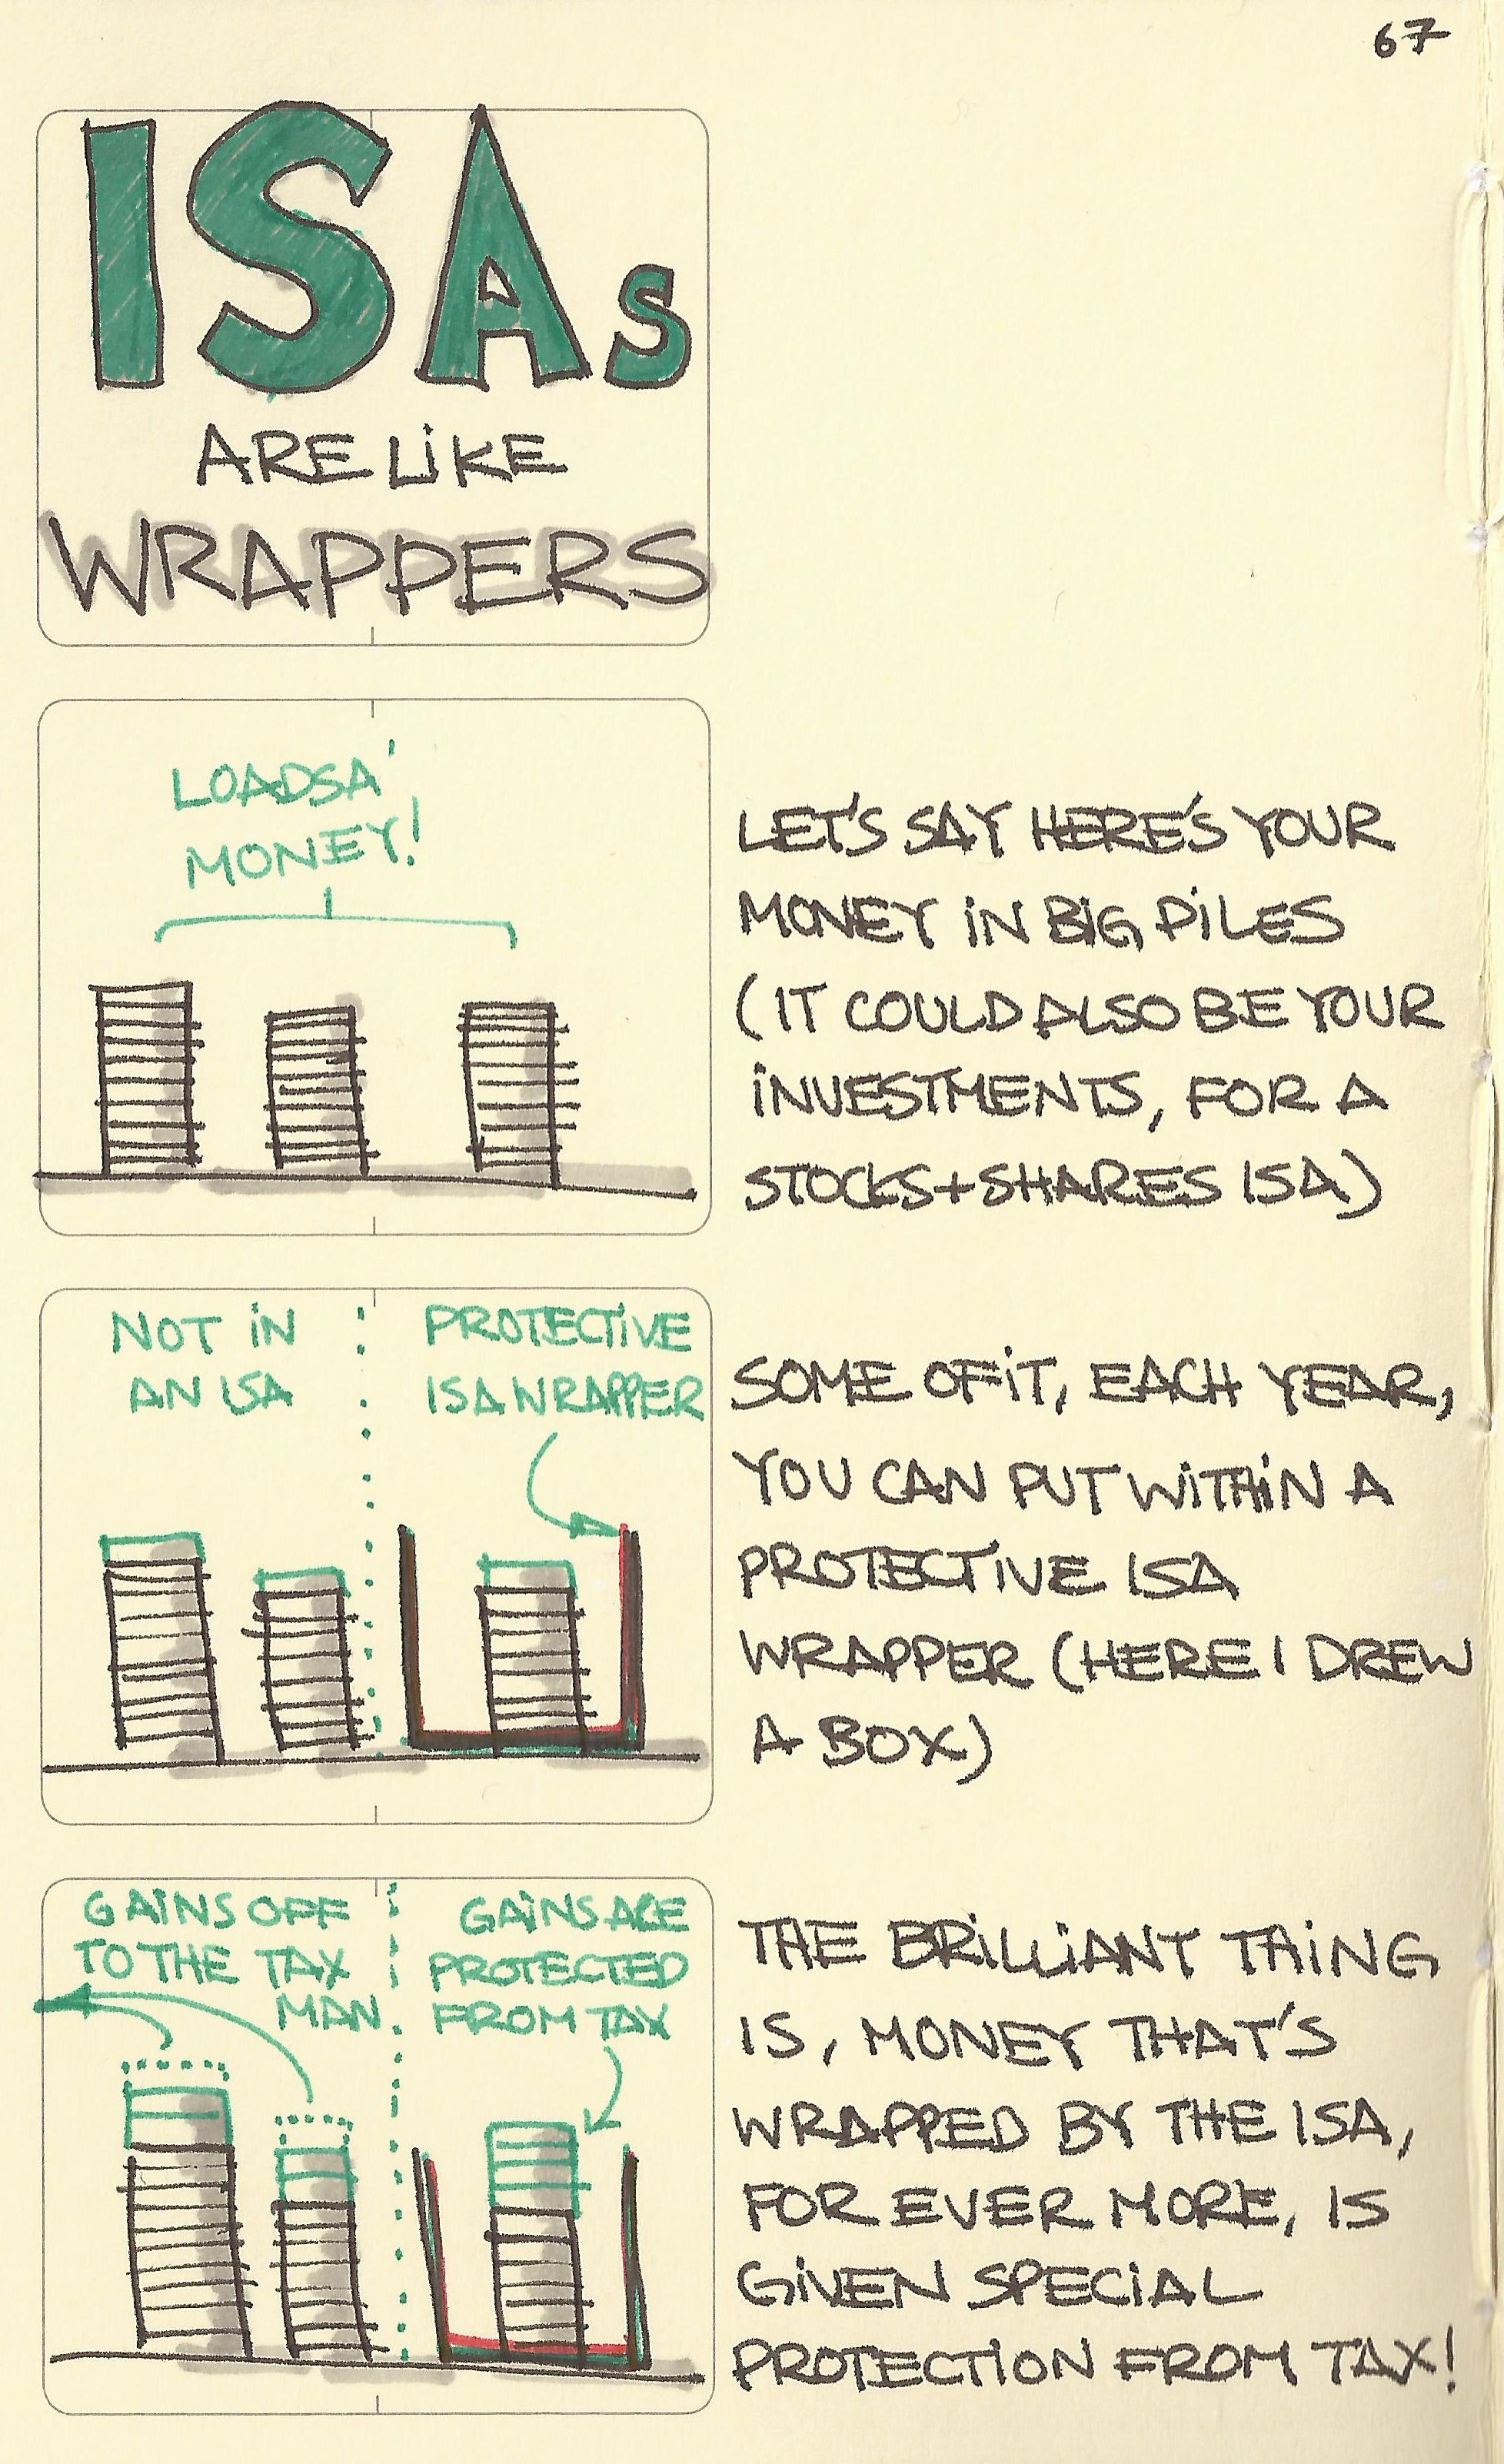 67
ISAs
ARE LIKE
WRAPPERS
LOADSA'
MONEY!
LET'S SAY HERE'S YOUR
MONEY IN BIG PILES
(IT COULD ALSO BE YOUR
INVESTMENTS, FOR A
STOCKS+SHARES ISA)
NOT IN
AN ISA
PROTECTIVE
ISA WRAPPER
SOME OF IT, EACH YEAR,
YOU CAN PUT WITHIN A
PROTECTIVE ISA
WRAPPER (HERE I DREW
A BOX)
GAINS OFF
TO THE TAX
MAN.
GAINS ARE
PROTECTED
FROM TAX
THE BRILLIANT THING
IS, MONEY THAT'S
WRAPPED BY THE ISA,
FOR EVER MORE, IS
GIVEN SPECIAL
PROTECTION FROM TAX!